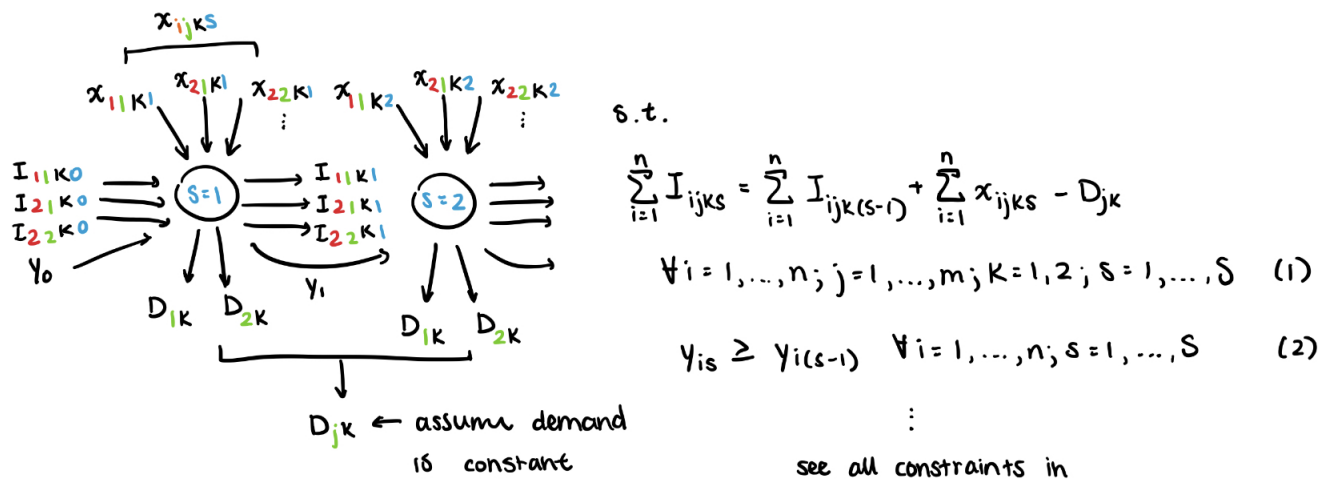 x_{ijks}
x_{11k1} x_{21k1} x_{22k1} x_{11k2} x_{21k2} x_{22k2}
⋮ ⋮
s.t.
I_{11k0} I_{11k1}
I_{21k0} s=1 I_{21k1} s=2
I_{22k0} I_{22k1}
y_0 y_1
D_{1k} D_{2k} D_{1k} D_{2k}
D_{jk} ← assume demand
is constant
\sum_{i=1}^{n} I_{ijks} = \sum_{i=1}^{n} I_{ijk(s-1)} + \sum_{i=1}^{n} x_{ijks} - D_{jk}
∀i=1,...,n; j=1,...,m; k=1,2; s=1,...,S (1)
y_{is} ≥ y_{i(s-1)} ∀i=1,...,n; s=1,...,S (2)
⋮
see all constraints in